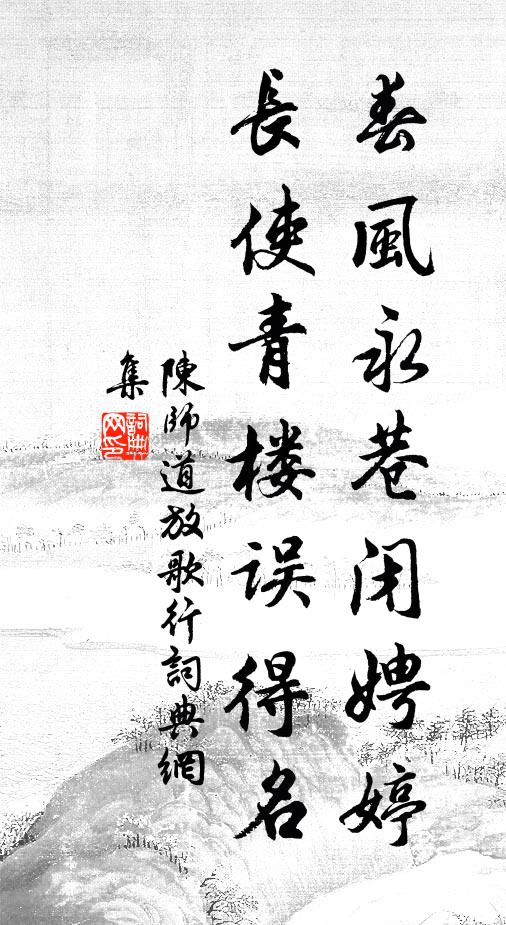 春風永巷闭娉婷
長使青楼误得名
陳師道放歌行詞典網
集
詞典
网印